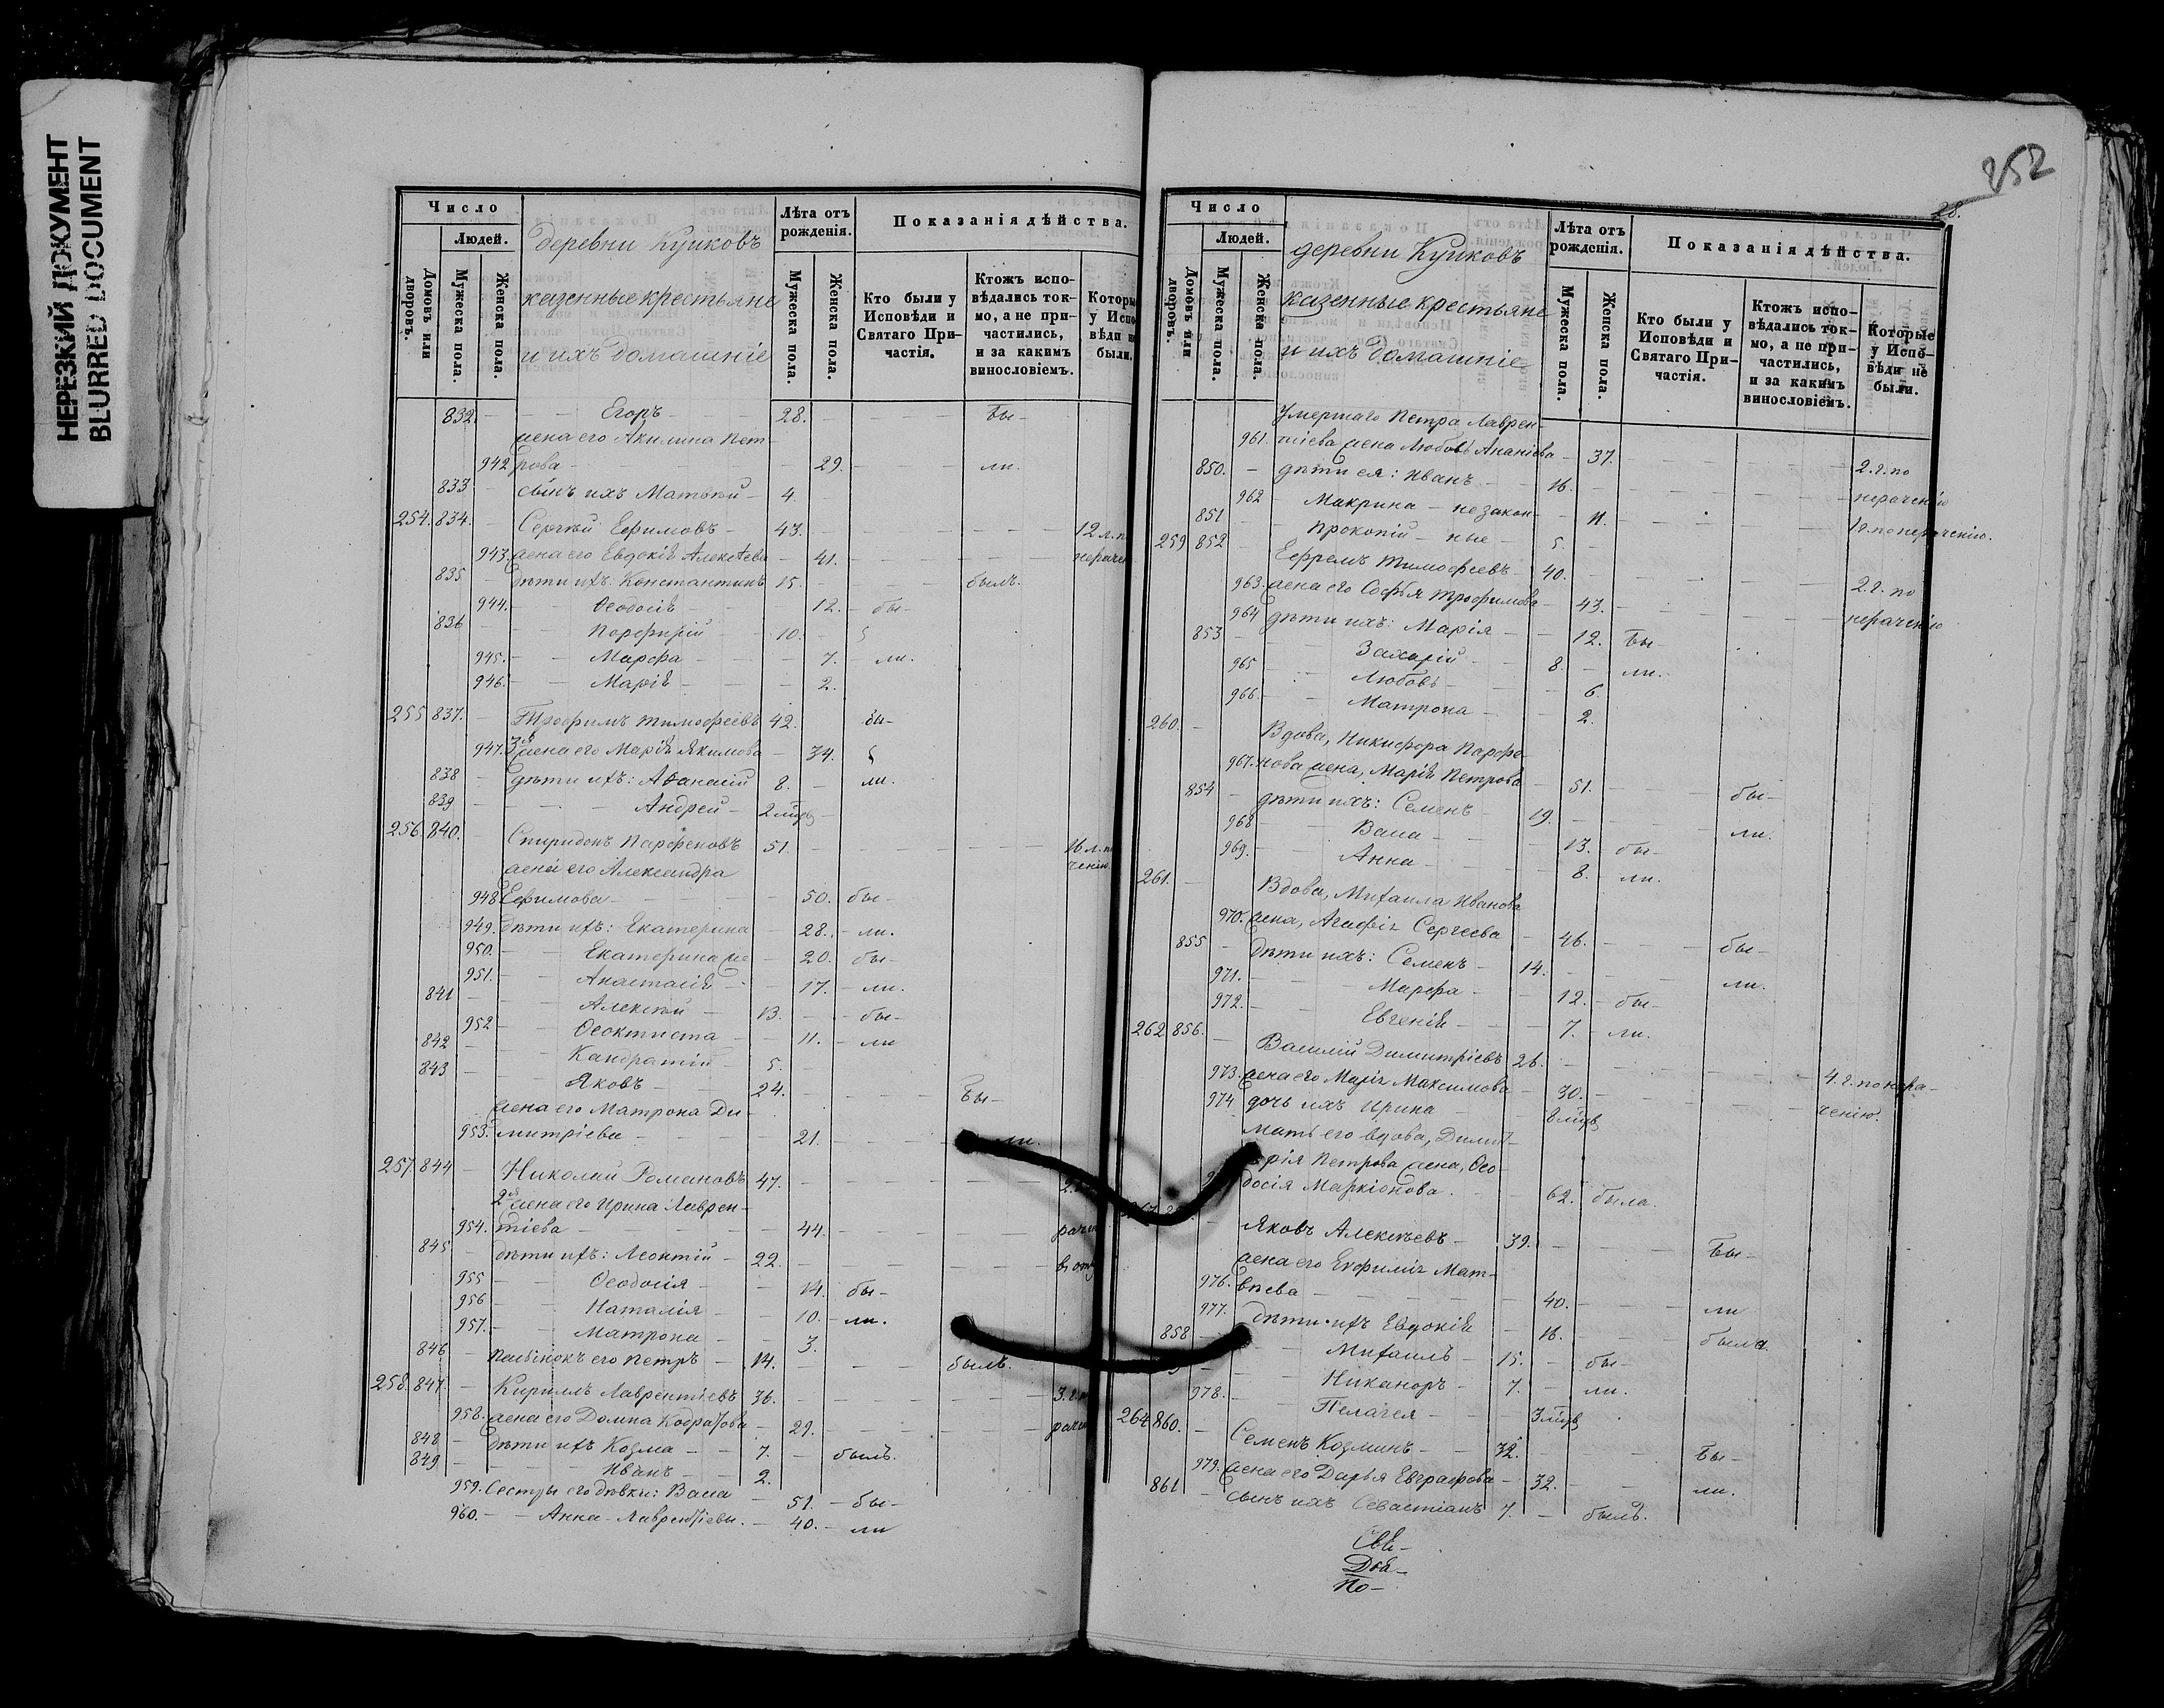 НЕРЕЗКИЙ ДОКУМЕНТ
BLURRED DOCUMENT
Число
Людей.
Домовъ или дворовъ.
Мужеска пола.
Женска пола.
деревни Куиковъ
казенные крестьяне
и ихъ домашніе
Лѣта отъ рожденія.
Мужеска пола.
Женска пола.
Показанія дѣйства.
Кто были у Исповѣди и Святаго Причастія.
Ктожъ исповѣдались токмо, а не причастились, и за какимъ винословіемъ.
Которы
у Испо
вѣди н
были.
832. — — Егоръ — 28. — — — бы—
жена его Акилина Пет-
942 рова — — 29. — — ли.
833 — сынъ ихъ Матвѣй — 4. —
254. 834. — Сергѣй Ефимовъ — 43. — — — — 12 л. п
943. жена его Евдокія Алексѣева — 41. — — — нераче
835 — дѣти ихъ: Константинъ 15. — — — былъ.
944. — — Ѳеодосія — 12. — бы—
836 — — Порфирій — 10. —
945. — — Марфа — — 7. — ли.
946. — — Марія — — 2.
255 837. — Трофимъ Тимофеевъ 42. бы—
947. 3я жена его Марія Якимова — 34.
838 — дѣти ихъ: Аѳанасій 8. — ли.
839 — — — Андрей — 2 мѣс.
256. 840. — Спиридонъ Парфеновъ 51. — — — — 16 л. п
жена его Александра ченію
948 Ефимова — — 50. бы—
949. дѣти ихъ: Екатерина — 28. — ли.
950. — — Екатерина же — 20. бы—
951. — — Анастасія — 17. — ли.
841 — — Алексѣй — 13. — — бы—
952 — — Ѳеоктиста — 11. — ли
842 — — Кандратій — 5.
843 — — Яковъ — 24. — — — бы—
жена его Матрона Ди-
953. митріева — — 21. — — — ли.
257. 844 — Николай Романовъ 47. — — — — 2.
2я жена его Ирина Лаврен-
954. тіева — — 44. — — — раче
845 — дѣти ихъ: Леонтій — 22. — — — — в от
955 — — Ѳеодосія — 14. бы—
956 — — Наталія — 10. — ли.
957. — — Матрона — — 3.
846 — Пасынокъ его Петръ — 14. — — — былъ.
258. 847. — Кириллъ Лаврентіевъ 36. — — — — 3. г.
958. жена его Домна Кодратова — 29. — — — раче
848 — дѣти ихъ Козма — — 7. — былъ.
849 — — — Иванъ — 2.
959. Сестры его дѣвки: Васса — 51. — бы—
960. — — Анна — Лаврентіевы. — 40. — ли
252
28.
Число
Людей.
Домовъ или дворовъ.
Мужеска пола.
Женска пола.
деревни Куиковъ
казенные крестьяне
и ихъ домашніе
Лѣта отъ рожденія.
Мужеска пола.
Женска пола.
Показанія дѣйства.
Кто были у Исповѣди и Святаго Причастія.
Ктожъ исповѣдались токмо, а не причастились, и за какимъ винословіемъ.
Которые у Исповѣди не были.
Умершаго Петра Лаврен-
961. тіева жена Любовь Ананіева — 37. — — — 2. г. по
850. — дѣти ея: Иванъ — 16. — — — — нераченію
962 — Макрина — незакон- — 11. — — — 1 г. по нераченію.
851 — Прокопій — ные — 5. —
259 852 — Ефремъ Тимофеевъ — 40. — — — — 2. г. по
963. жена его Софья Трофимова — 43. — — — нераченію
964 дѣти ихъ: Марія — — 12. бы—
853 — — Захарій — 8. — ли.
965 — — Любовь — — 6.
966. — — Матрона — — 2.
260. — Вдова, Никифора Парфе-
967. нова жена, Марія Петрова — 51. — — бы—
854 — дѣти ихъ: Семенъ — 19. — — — ли.
968 — — Васса — — 13. — бы—
969. — — Анна — — 8. — ли.
261. — Вдова, Михаила Иванова
970. жена, Агафія Сергеева — 46. — — бы—
855 — дѣти ихъ: Семенъ — 14. — — — ли.
971. — — Марфа — — 12. — бы—
972. — — Евгенія — — 7. — ли.
262 856. — Василій Димитріевъ 26. — — — — 4. г. по нера-
973. жена его Марія Максимова — 30. — — — ченію.
974 дочь ихъ Ирина — 8 мѣс.
мать его вдова, Димит-
рія Петрова жена, Ѳео-
досія Маркіонова. — 62. была.
— Яковъ Алексѣевъ — 39. — — — бы—
жена его Евфимія Мат-
976. вѣева — — 40. — — ли
977. дѣти ихъ Евдокія — 16. — — была.
858 — — Михаилъ — 15. — бы—
— — Никаноръ — 7. — ли.
978. — — Пелагея — — 3 мѣс.
264 860. — Семенъ Козминъ — 32. — — — бы—
979. жена его Дарья Евграфова — 32. — — ли.
861 — сынъ ихъ Севастіанъ 7. — былъ.
Свѣ—
Два—
По—